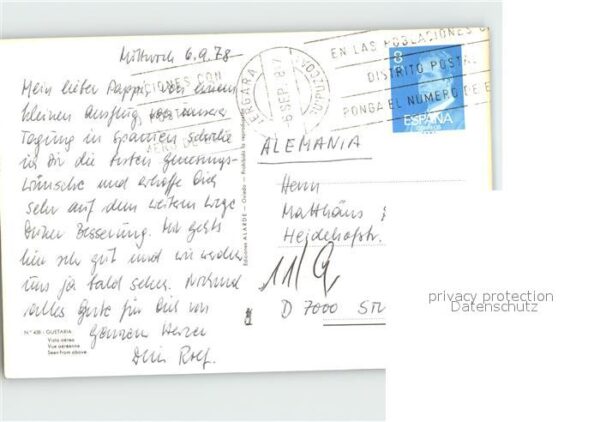 Mittwoch 6.9.78
Mein lieber Pappi, von einem
kleinen Ausflug von unserer
Tagung in Spanien schicke
ich Dir die besten Genesungs-
wünsche und erhoffe Dich
sehr auf dem weitern Wege
Deiner Besserung. Mir geht's
hier sehr gut und wir werden
uns ja bald sehen. Nochmal
alles Gute für Dich von
ganzem Herzen
Dein Rolf.
Nº 438 - GUETARIA
Vista aérea
Vue aérienne
Seen from above
Ediciones ALARDE - Oviedo - Prohibida la reproducción
CIONES CON
VERGARA
-6 SEP. 8-7
GUIPUZCOA
EN LAS POBLACIONES
DISTRITO POSTAL
PONGA EL NUMERO DE E
8
ESPAÑA
CORREOS
ALEMANIA
Herrn
Matthäus
Heidehofstr.
11/9
D 7000 ST
privacy protection
Datenschutz